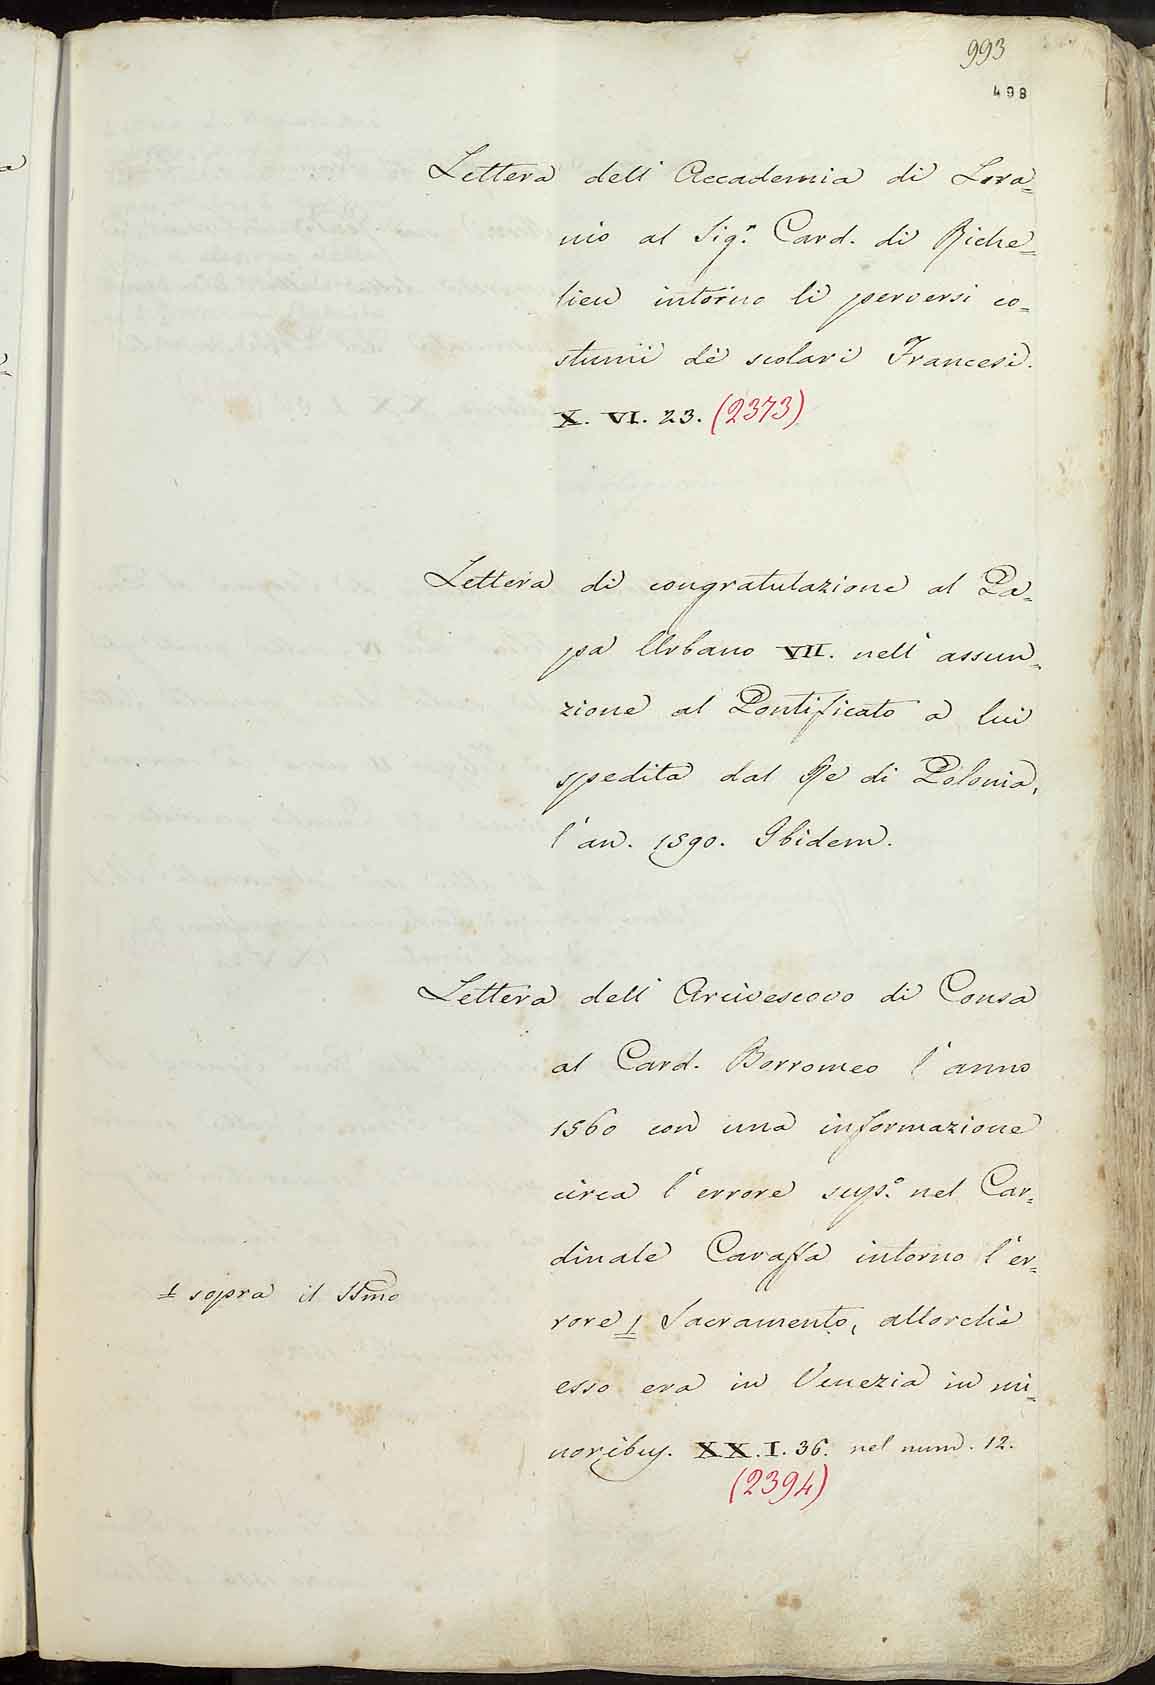 993
498
Lettera dell' Accademia di Lova=
nio al Sig.r Card. di Riche=
lieu intorno li perversi co=
stumi de' scolari Francesi.
X. VI. 23. (2373)
Lettera di congratulazione al Pa=
pa Urbano VII. nell' assun=
zione al Pontificato a lui
spedita dal Re di Polonia,
l'an. 1590. Ibidem.
Lettera dell' Arcivescovo di Consa
al Card. Borromeo l'anno
1560 con una informazione
circa l'errore sup.o nel Car=
dinale Caraffa intorno l'er=
rore 1 Sacramento, allorchè
1 sopra il SSmo
esso era in Venezia in mi=
noribus. XX. I. 36. nel num. 12.
(2394)